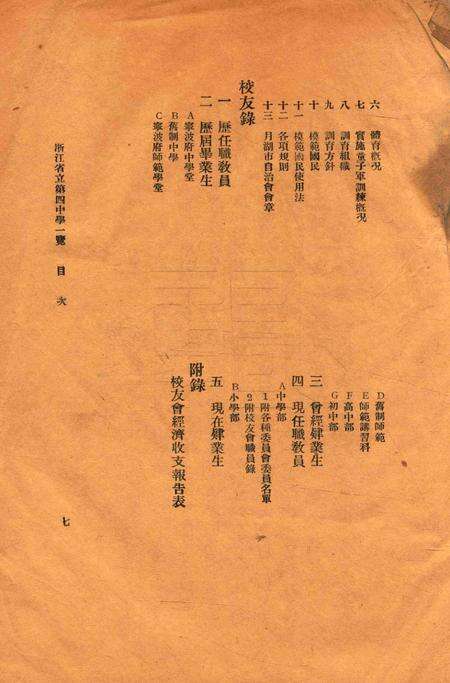 六　體育概況
七　實施童子軍訓練概況
八　訓育組織
九　訓育方針
十　模範國民
十一　模範國民使用法
十二　各項規則
十三　月湖市自治會會章
校友錄
一　歷任職敎員
二　歷屆畢業生
A 寧波府中學堂
B 舊制中學
C 寧波府師範學堂
D 舊制師範
E 師範講習科
F 高中部
G 初中部
三　曾經肄業生
四　現任職敎員
A 中學部
1 附各種委員會委員名單
2 附校友會職員錄
B 小學部
五　現在肄業生
附錄
校友會經濟收支報告表
浙江省立第四中學一覽　目次
七